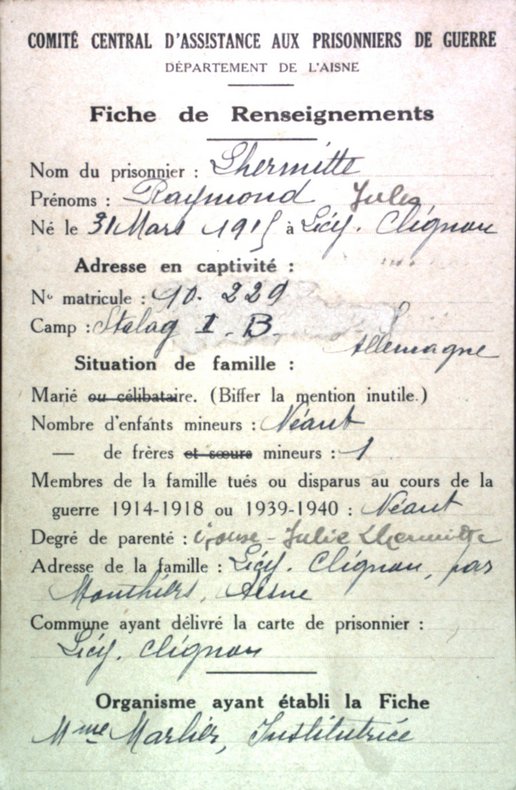 COMITÉ CENTRAL D'ASSISTANCE AUX PRISONNIERS DE GUERRE
DÉPARTEMENT DE L'AISNE
Fiche de Renseignements
Nom du prisonnier : Lhermitte
Prénoms : Raymond Jules
Né le 31 Mars 1915 à Licy. Clignon
Adresse en captivité :
No matricule : 90. 229
Camp : Stalag I. B
Allemagne
Situation de famille :
Marié ou célibataire. (Biffer la mention inutile.)
Nombre d'enfants mineurs : Néant
— de frères et sœurs mineurs : 1
Membres de la famille tués ou disparus au cours de la
guerre 1914-1918 ou 1939-1940 : Néant
Degré de parenté : épouse - Lhermitte
Adresse de la famille : Licy. Clignon, par
Monthiers, Aisne
Commune ayant délivré la carte de prisonnier :
Licy. Clignon
Organisme ayant établi la Fiche
Mme Marlier, Institutrice